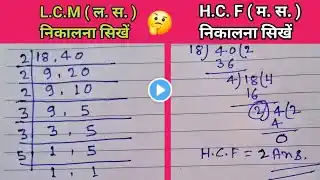 L.C.M ( ल. स. )
निकालना सिखें
H.C.F ( म. स. )
निकालना सिखें
2 | 18, 40
2 | 9, 20
2 | 9, 10
3 | 9, 5
3 | 3, 5
5 | 1, 5
1, 1
18) 40 (2
36
4) 18 (4
16
2) 4 (2
4
0
H.C.F = 2 Ans.